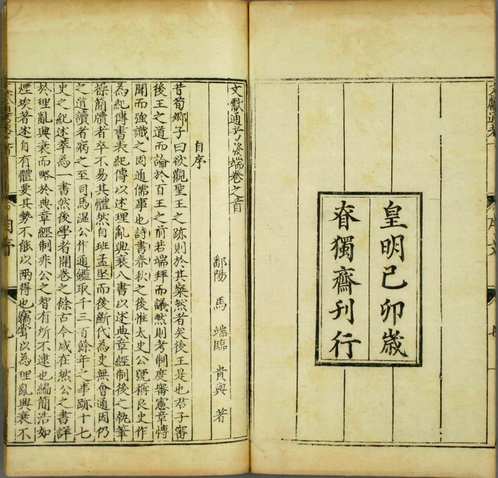 皇明己卯歲
眘獨齋刊行
文獻通考 端卷之首
鄱陽 馬 端臨 貴與 著
自序
昔荀卿子曰欲觀聖王之跡則於其粲然者矣後王是也君子審
後王之道而論於百王之前若端拜而議然則考制度審憲章博
聞而強識之固通儒事也詩書春秋之後惟太史公號稱良史作
為紀傳書表紀傳以述理亂興衰八書以述典章經制後之執筆
操簡牘者卒不易其體然自班孟堅而後斷代為史無會通因仍
之道讀者病之至司馬溫公作通鑑取千三百餘年之事跡十七
史之紀述萃為一書然後學者開卷之餘古今咸在然公之書詳
於理亂興衰而略於典章經制非公之智有所不逮也編簡浩如
煙埃著述自有體要其勢不能以兩得也竊嘗以為理亂興衰不